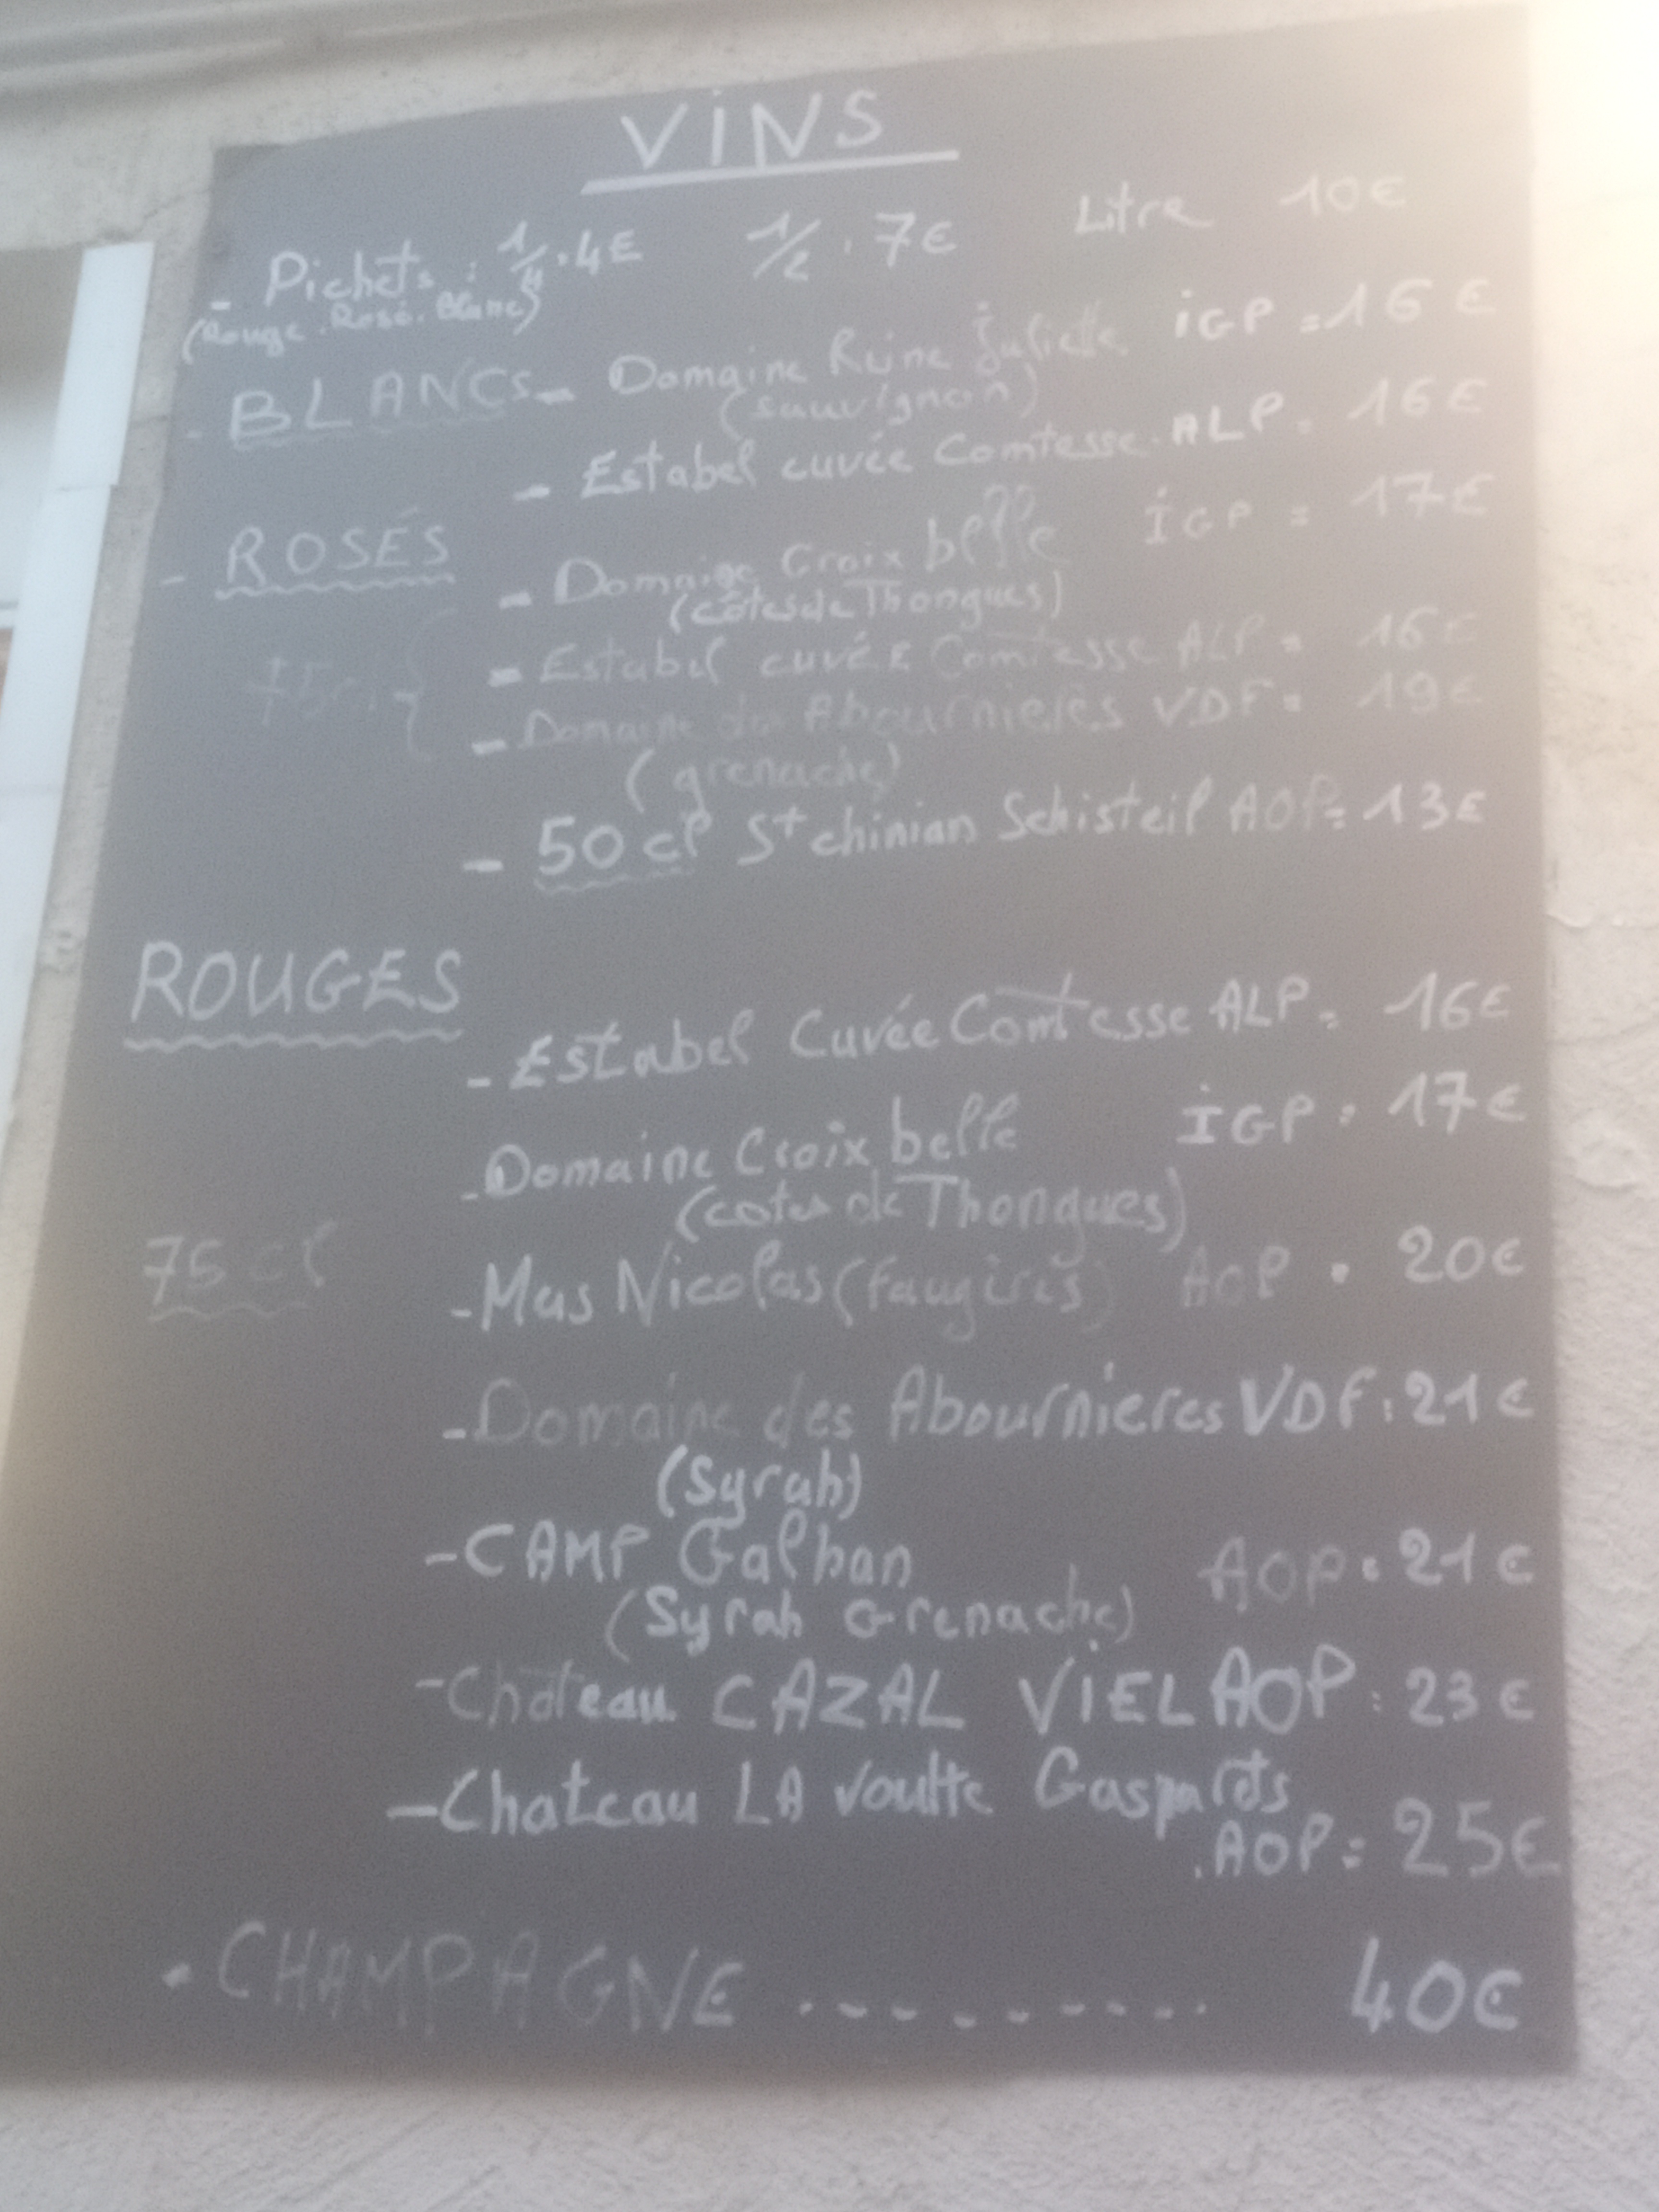 VINS
- Pichets : 1/4 . 4€ 1/2 . 7€ Litre 10€
(Rouge . Rosé . Blanc)
- BLANCS - Domaine Reine Juliette IGP = 16€
(sauvignon)
- Estabel cuvée Comtesse . ALP = 16€
- ROSÉS
- Domaine Croix belle IGP = 17€
(côtes de Thongues)
75cl { - Estabel cuvée Comtesse ALP = 16€
- Domaine des Abournieres VDF = 19€
(grenache)
- 50 cl St chinian Schisteil AOP = 13€
ROUGES
- Estabel Cuvée Comtesse ALP = 16€
- Domaine Croix belle IGP = 17€
(cotes de Thongues)
75 cl
- Mas Nicolas (Faugères) AOP = 20€
- Domaine des Abournieres VDF : 21€
(Syrah)
- CAMP Galhan AOP : 21€
(Syrah Grenache)
- Château CAZAL VIEL AOP : 23€
- Chateau LA Voulte Gasparets
. AOP = 25€
- CHAMPAGNE .......... 40€